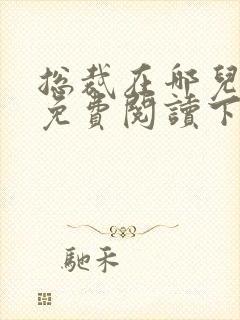 总裁在哪兒
免費閱讀下
馳禾